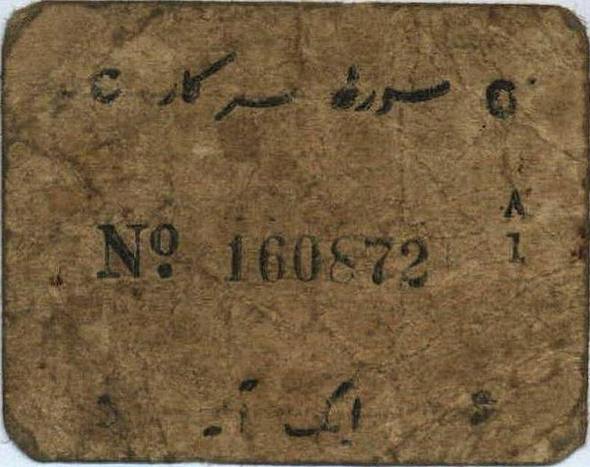 سورٹھ سرکار
A
1
No. 160872
ایک آنہ